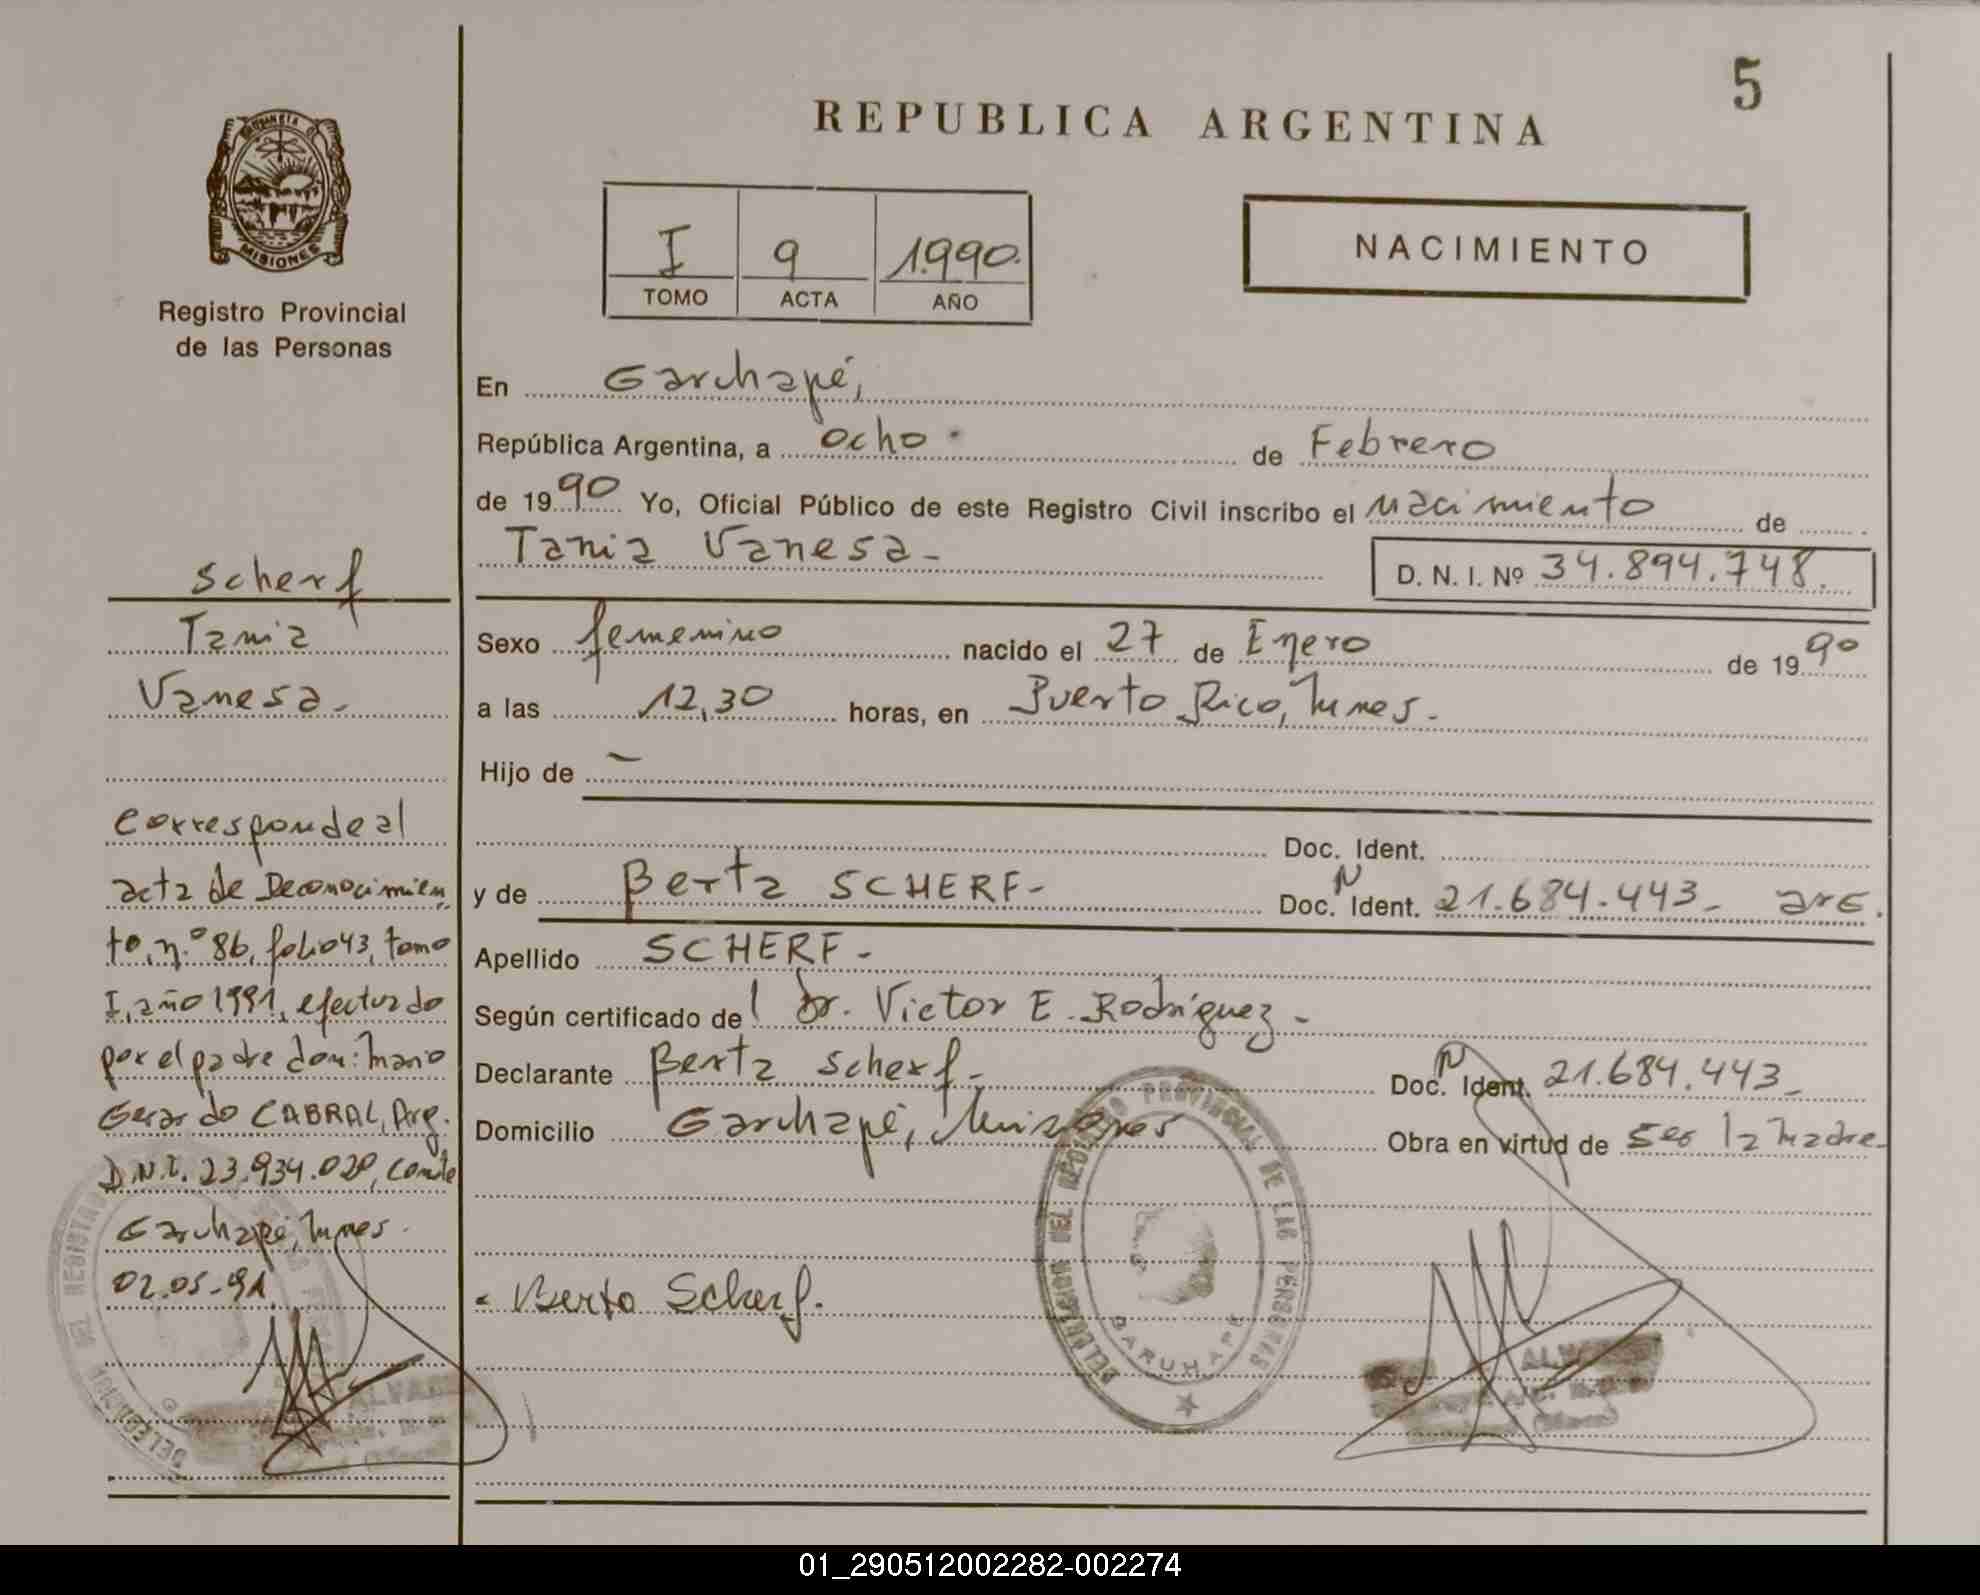 5
REPUBLICA ARGENTINA
PROVINCIA DE
MISIONES
Registro Provincial
de las Personas
I 9 1.990.
TOMO ACTA AÑO
NACIMIENTO
En Garuhapé,
República Argentina, a ocho de Febrero
de 1990 Yo, Oficial Público de este Registro Civil inscribo el nacimiento de
Tania Vanesa-
D. N. I. Nº 34.894.748.
Sexo femenino nacido el 27 de Enero de 1990
a las 12,30 horas, en Puerto Rico, Mnes.
Hijo de -
Doc. Ident.
y de Berta SCHERF- Doc. N Ident. 21.684.443- arg.
Apellido SCHERF-
Según certificado de l Dr. Victor E. Rodriguez-
Declarante Berta Scherf- Doc. N Ident. 21.684.443-
Domicilio Garuhapé, Misiones Obra en virtud de ser la madre-
Berta Scherf.
DELEGACION DEL REGISTRO PROVINCIAL DE LAS PERSONAS
GARUHAPE
ALVAREZ
Scherf
Tania
Vanesa-
Corresponde al
acta de Reconocimien
to, n.º 86, folio 43, tomo
I, año 1991, efectuado
por el padre don: Mario
Gerardo CABRAL, Arg.
D.N.I. 23.934.020,
Garuhapé, Mnes.
02.05-91
DELEGACION DEL REGISTRO
ALVAREZ
01_290512002282-002274